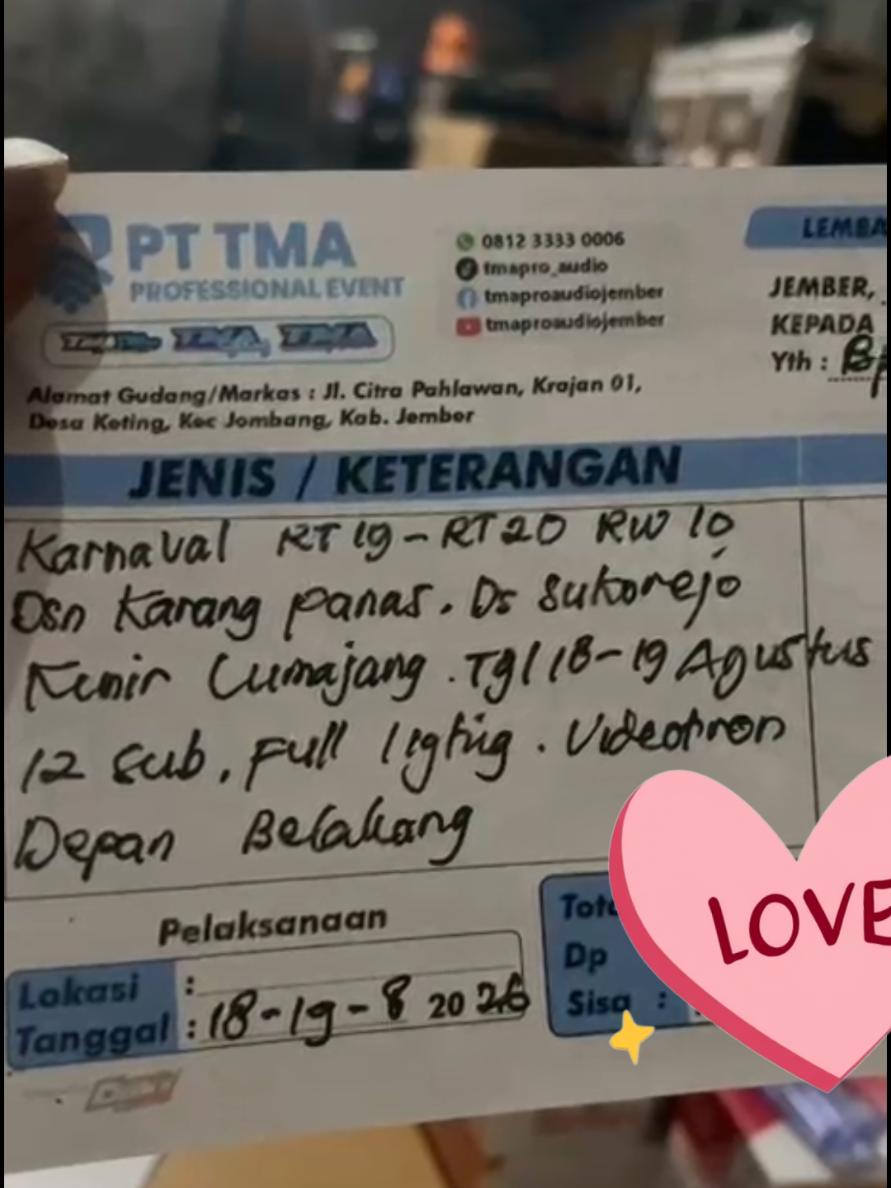 PT TMA
PROFESSIONAL EVENT
TMA, TMA
0812 3333 0006
tmapro_audio
tmaproaudiojember
tmaproaudiojember
LEMBA
JEMBER,
KEPADA
Yth : Bp
Alamat Gudang/Markas : Jl. Citra Pahlawan, Krajan 01,
Desa Keting, Kec Jombang, Kab. Jember
JENIS / KETERANGAN
Karnaval RT 19 - RT 20 RW 10
Dsn Karang panas. Ds Sukorejo
Kunir Lumajang. Tgl 18-19 Agustus
12 Sub. Full ligting. Videotron
Depan Belakang
Pelaksanaan
Lokasi :
Tanggal : 18-19-8 2026
Tot
Dp
Sisa :
LOVE